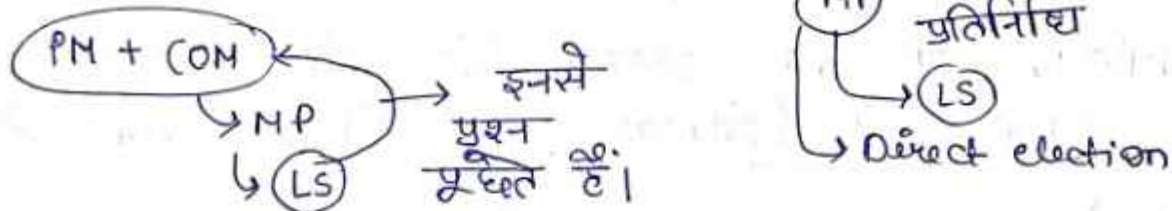 PM + COM
→ MP
→ LS
→ इनसे
प्रश्न
पूछते हैं।
प्रतिनिधि
→ LS
→ Direct election